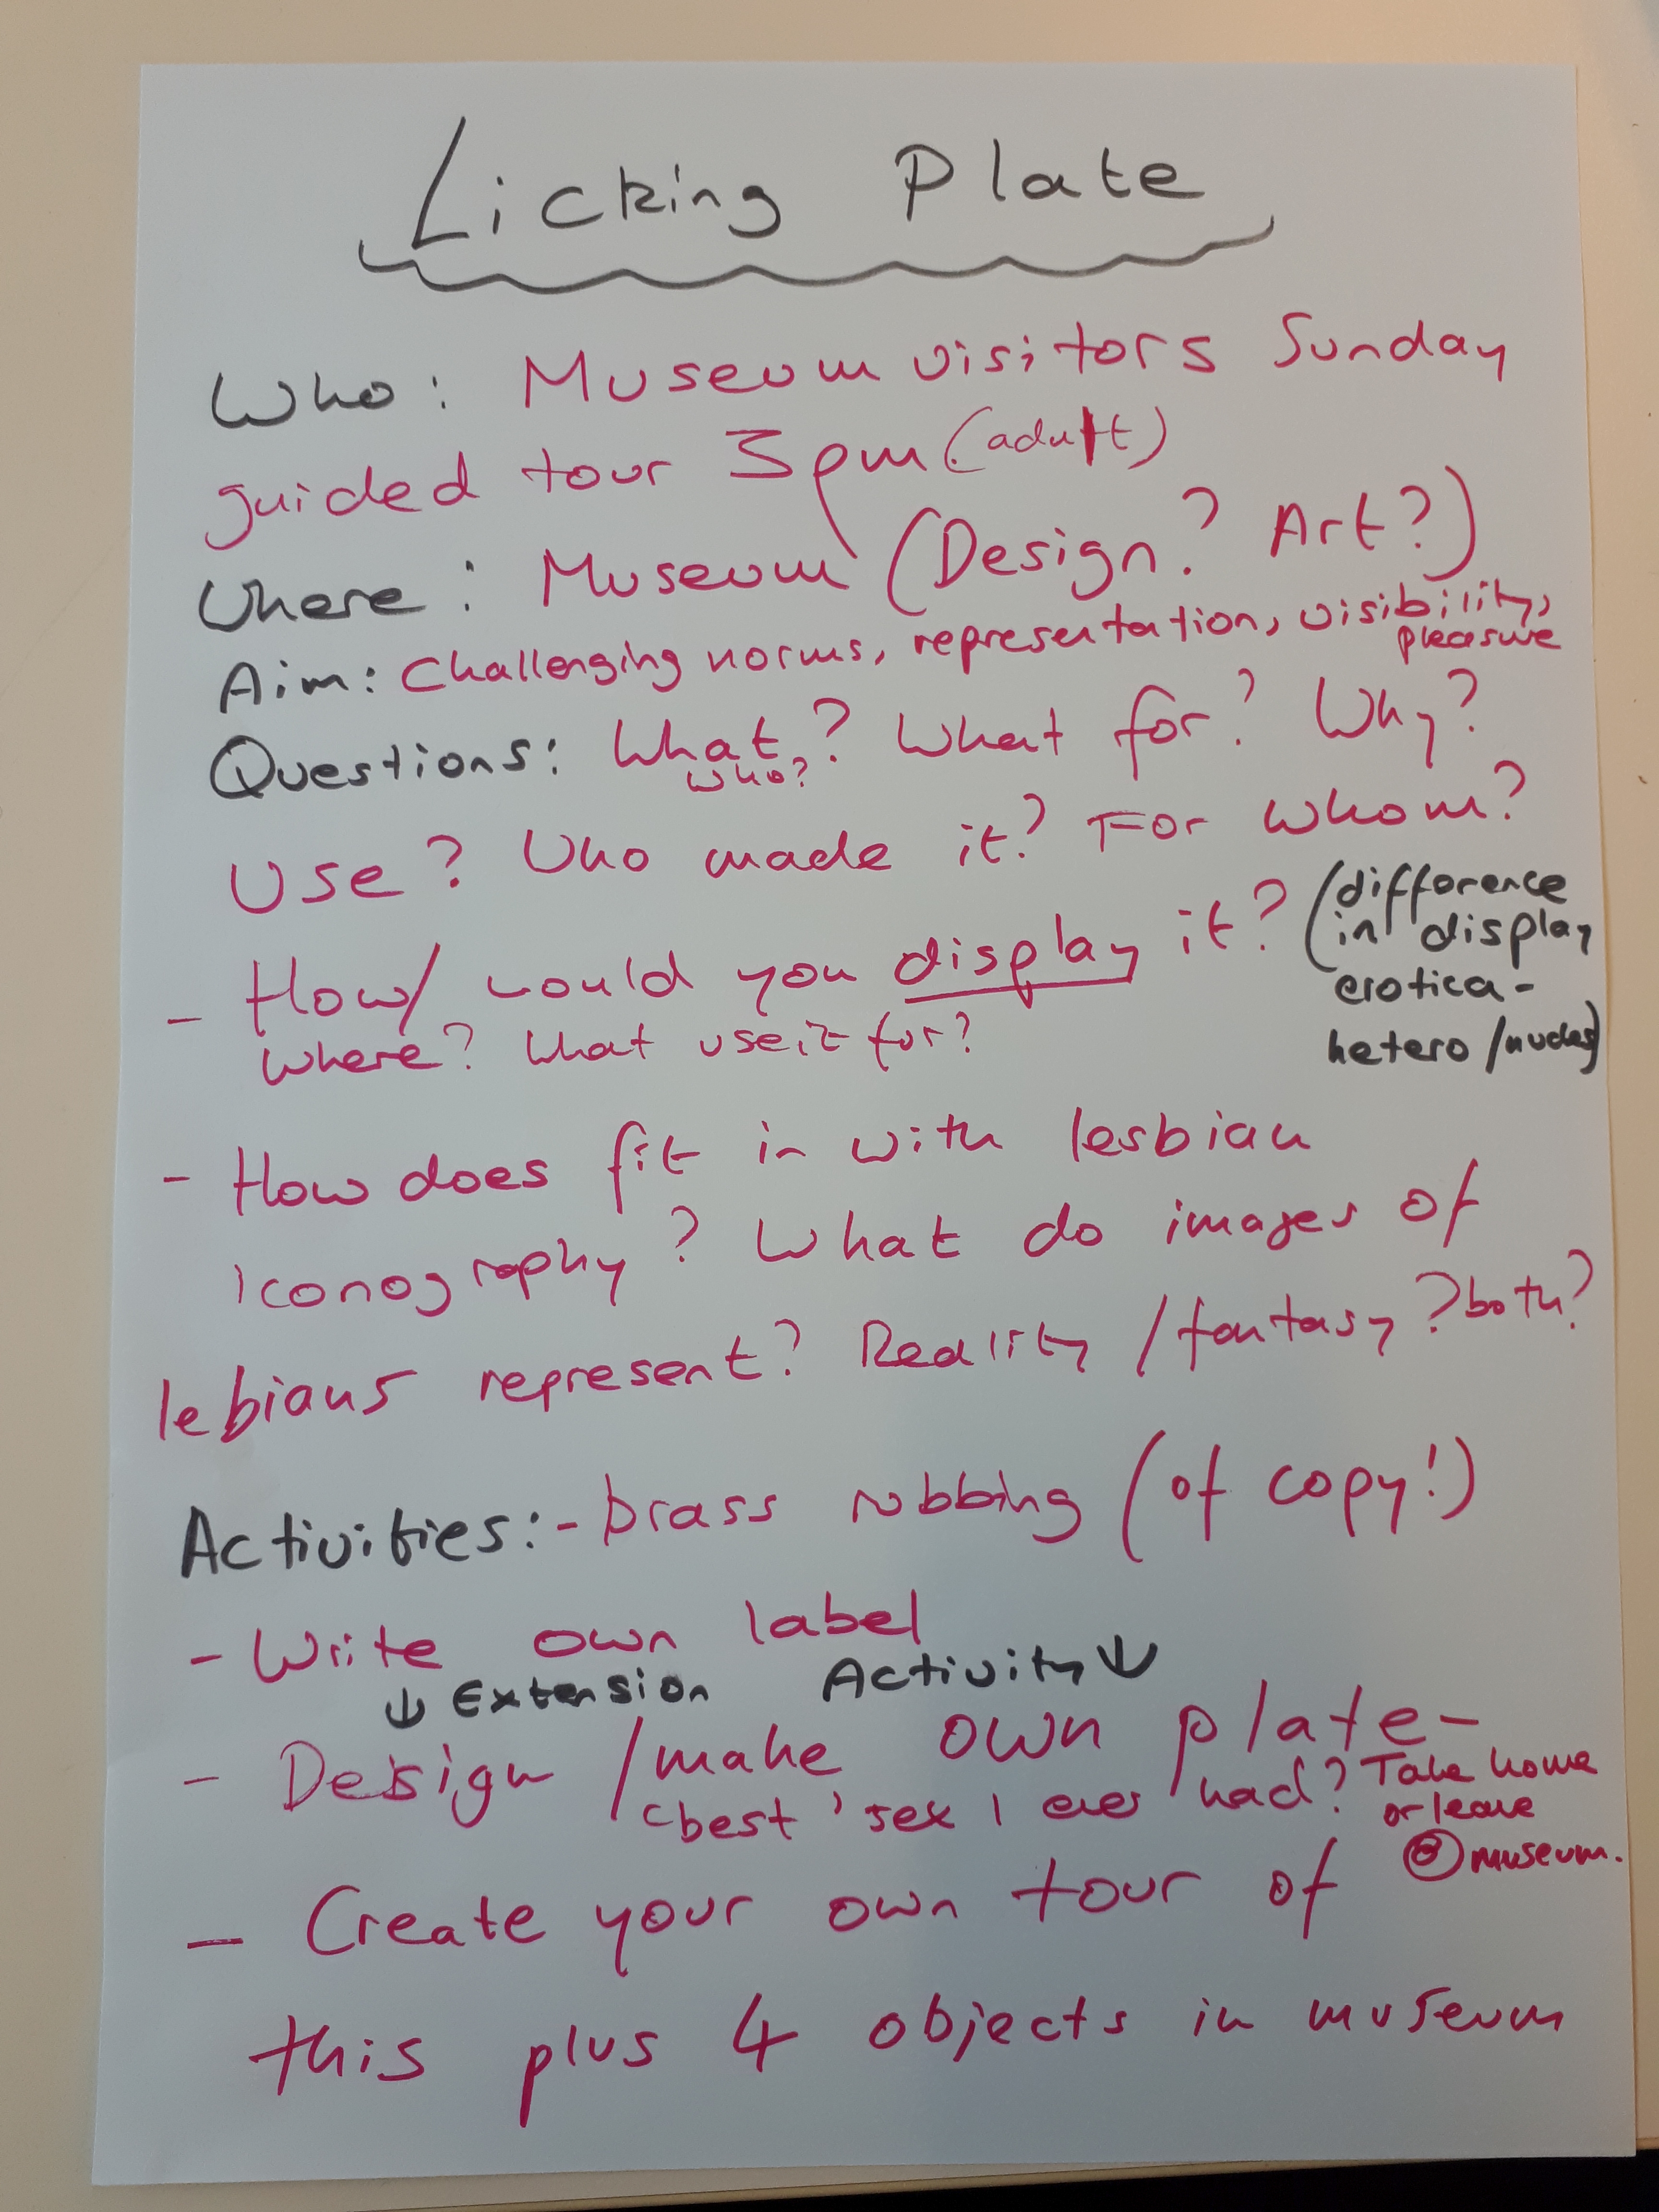 Licking Plate
Who: Museum visitors Sunday
guided tour 3pm (adult)
Where: Museum (Design? Art?)
Aim: Challenging norms, representation, visibility,
pleasure
Questions: What? What for? Why?
who?
Use? Who made it? For whom?
- How/ would you display it? (difference
in display
erotica -
hetero /nudes)
where? What use it for?
- How does fit in with lesbian
iconography? What do images of
lebians represent? Reality /fantasy? both?
Activities: - brass rubbing (of copy!)
- Write own label
↓ Extension Activity ↓
- Design /make own plate -
'best' sex I ever had? Take home
or leave
@ museum.
- Create your own tour of
this plus 4 objects in museum